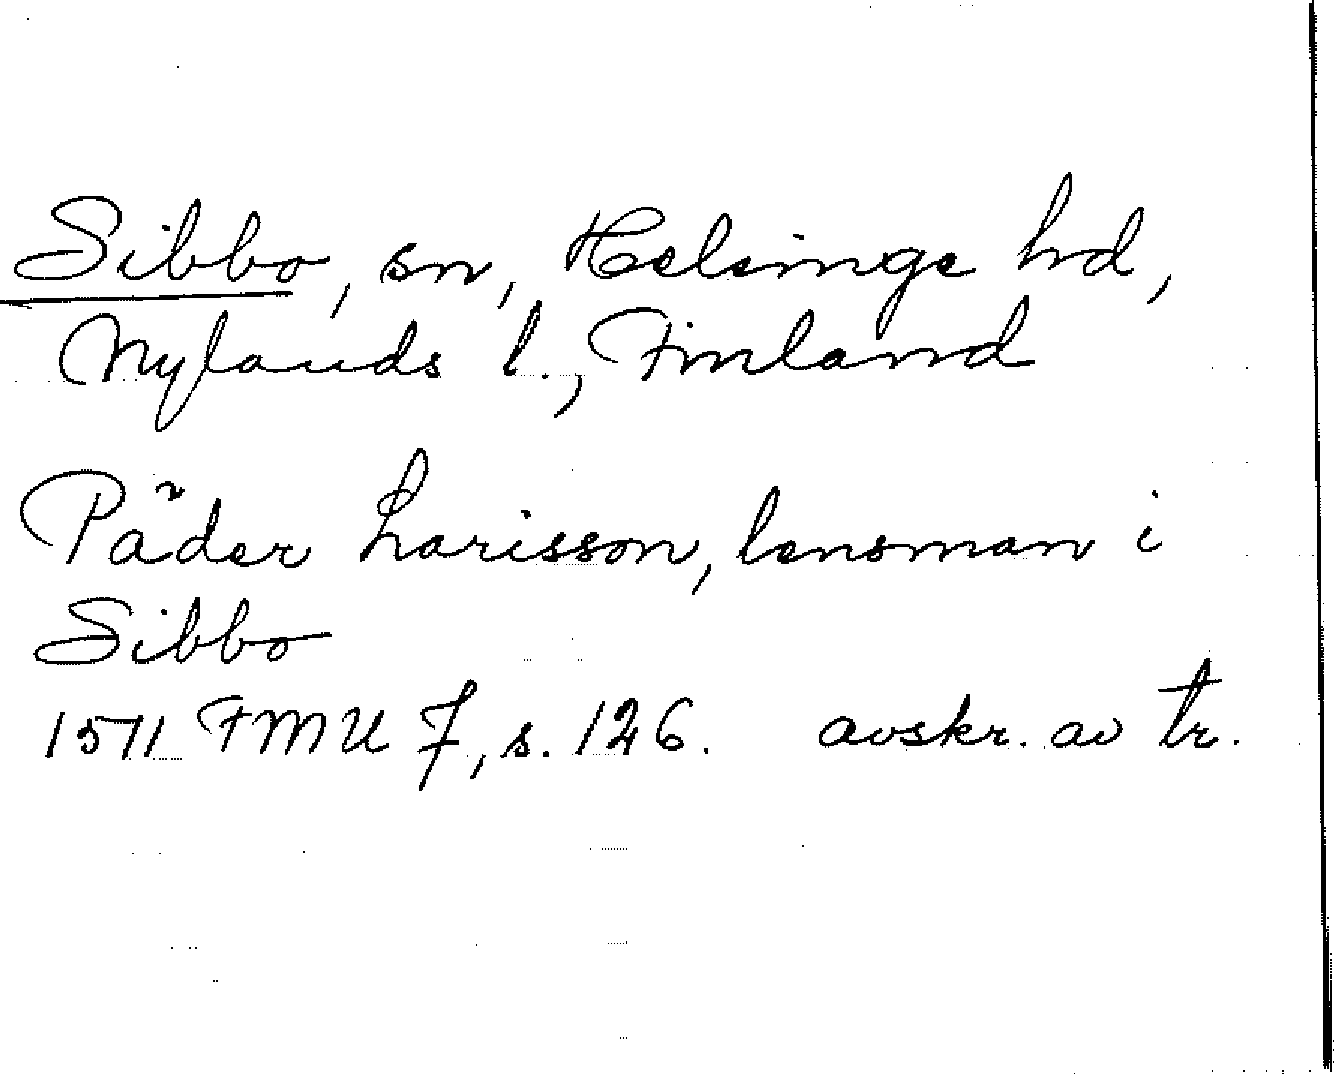 Sibbo, sn, Helsinge hd,
Nylands l., Finland
Päder Larisson, lensman i
Sibbo
1571 FMU 7, s. 126. avskr. av tr.